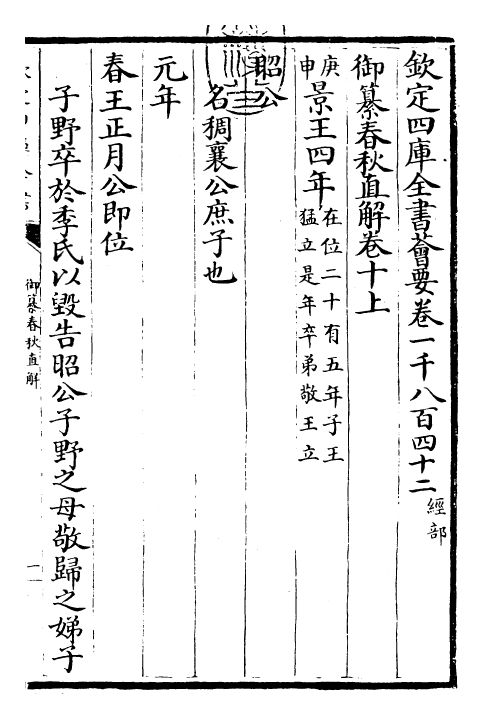 欽定四庫全書薈要卷一千八百四十二 經部
御纂春秋直解卷十上
庚申 景王四年 在位二十有五年子王
猛立是年卒弟敬王立
昭公
名稠襄公庶子也
元年
春王正月公即位
子野卒於季氏以毀告昭公子野之母敬歸之娣子
御纂春秋直解